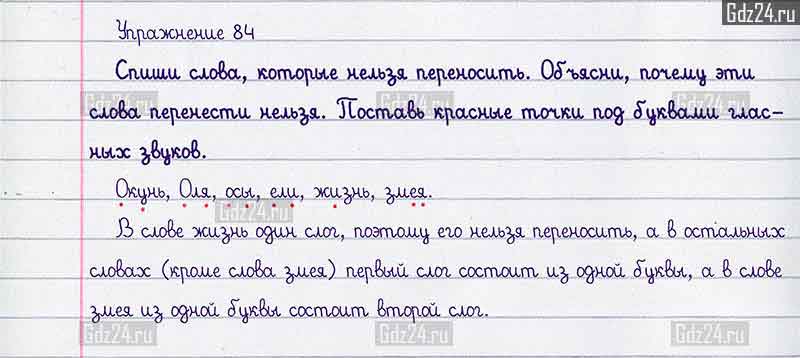 Gdz24.ru
Упражнение 84
Спиши слова, которые нельзя переносить. Объясни, почему эти
Gdz24.ru Gdz24.ru Gdz24.ru
слова перенести нельзя. Поставь красные точки под буквами глас-
ных звуков.
Окунь, Оля, осы, ели, жизнь, змея.
Gdz24.ru
В слове жизнь один слог, поэтому его нельзя переносить, а в остальных
словах (кроме слова змея) первый слог состоит из одной буквы, а в слове
змея из одной буквы состоит второй слог.
Gdz24.ru Gdz24.ru Gdz24.ru